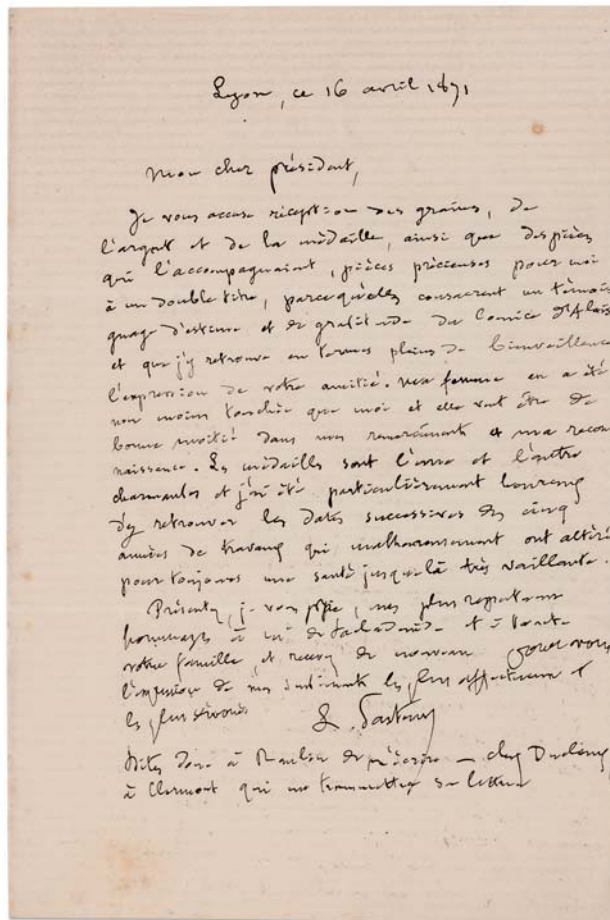 Lyon, ce 16 avril 1871
Mon cher président,
Je vous accuse réception des graines, de
l'argent et de la médaille, ainsi que des pièces
qui l'accompagnaient, pièces précieuses pour moi
à un double titre, parce qu'elles consacrent un témoi
gnage d'estime et de gratitude du Comice d'Alais
et que j'y retrouve en termes pleins de bienveillance
l'expression de votre amitié. Ma femme en a été
non moins touchée que moi et elle veut être de
bonne moitié dans mes remerciements et ma recon
naissance. Les médailles sont l'une et l'autre
charmantes et j'ai été particulièrement heureux
d'y retrouver les dates successives des cinq
années de travaux qui malheureusement ont altéré
pour toujours une santé jusque là très vaillante.
Présentez, je vous prie, mes plus respectueux
hommages à de Lachadenède et à toute
votre famille et recevez de nouveau pour vous
l'expression de mes sentiments les plus affectueux et
les plus dévoués
L. Pasteur
Dites donc à Raulin de m'écrire — chez Duclaux
à Clermont qui me transmettra sa lettre